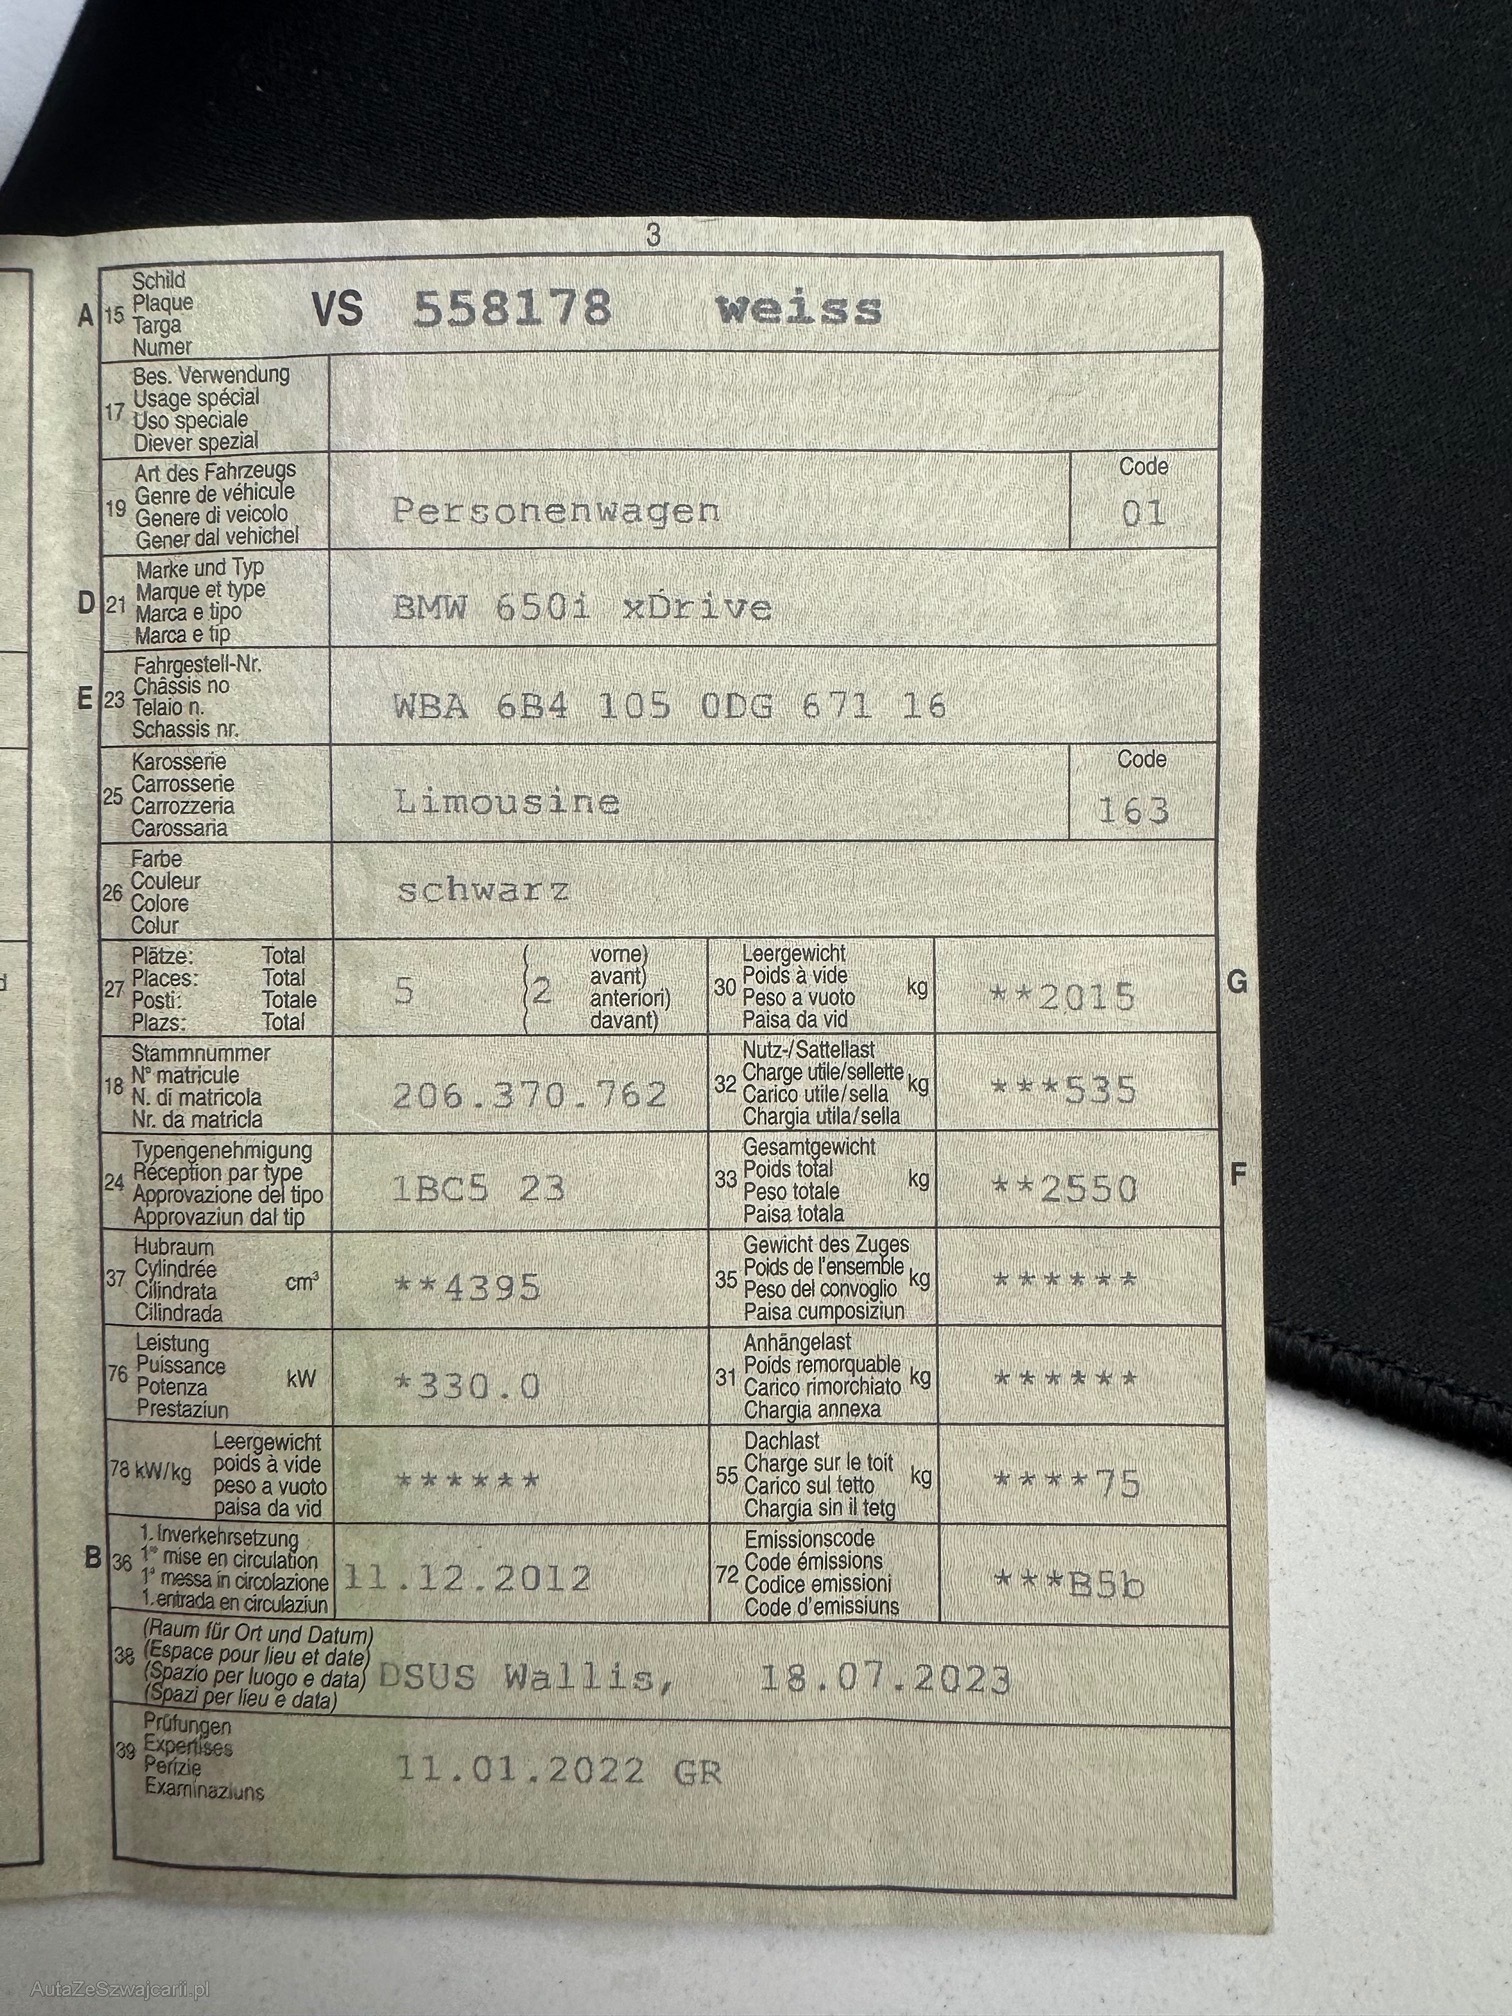 3
A 15 Schild Plaque Targa Numer VS 558178 weiss
17 Bes. Verwendung
Usage spécial
Uso speciale
Diever spezial
19 Art des Fahrzeugs
Genre de véhicule
Genere di veicolo
Gener dal vehichel
Personenwagen
Code
01
D 21 Marke und Typ
Marque et type
Marca e tipo
Marca e tip
BMW 650i xDrive
E 23 Fahrgestell-Nr.
Châssis no
Telaio n.
Schassis nr.
WBA 6B4 105 0DG 671 16
25 Karosserie
Carrosserie
Carrozzeria
Carossaria
Limousine
Code
163
26 Farbe
Couleur
Colore
Colur
schwarz
27 Plätze: Total
Places: Total
Posti: Totale
Plazs: Total
5
( 2
vorne)
avant)
anteriori)
davant)
30 Leergewicht
Poids à vide
Peso a vuoto
Paisa da vid
kg
**2015
G
18 Stammnummer
N° matricule
N. di matricola
Nr. da matricla
206.370.762
32 Nutz-/Sattellast
Charge utile/sellette
Carico utile/sella
Chargia utila/sella
kg
***535
24 Typengenehmigung
Réception par type
Approvazione del tipo
Approvaziun dal tip
1BC5 23
33 Gesamtgewicht
Poids total
Peso totale
Paisa totala
kg
**2550
F
37 Hubraum
Cylindrée
Cilindrata
Cilindrada
cm³
**4395
35 Gewicht des Zuges
Poids de l'ensemble
Peso del convoglio
Paisa cumposiziun
kg
******
76 Leistung
Puissance
Potenza
Prestaziun
kW
*330.0
31 Anhängelast
Poids remorquable
Carico rimorchiato
Chargia annexa
kg
******
78 kW/kg
Leergewicht
poids à vide
peso a vuoto
paisa da vid
******
55 Dachlast
Charge sur le toit
Carico sul tetto
Chargia sin il tetg
kg
****75
B 36 1. Inverkehrsetzung
1re mise en circulation
1a messa in circolazione
1. entrada en circulaziun
11.12.2012
72 Emissionscode
Code émissions
Codice emissioni
Code d'emissiuns
***B5b
38 (Raum für Ort und Datum)
(Espace pour lieu et date)
(Spazio per luogo e data)
(Spazi per lieu e data)
DSUS Wallis, 18.07.2023
39 Prüfungen
Expertises
Perizie
Examinaziuns
11.01.2022 GR
d
AutaZeSzwajcarii.pl